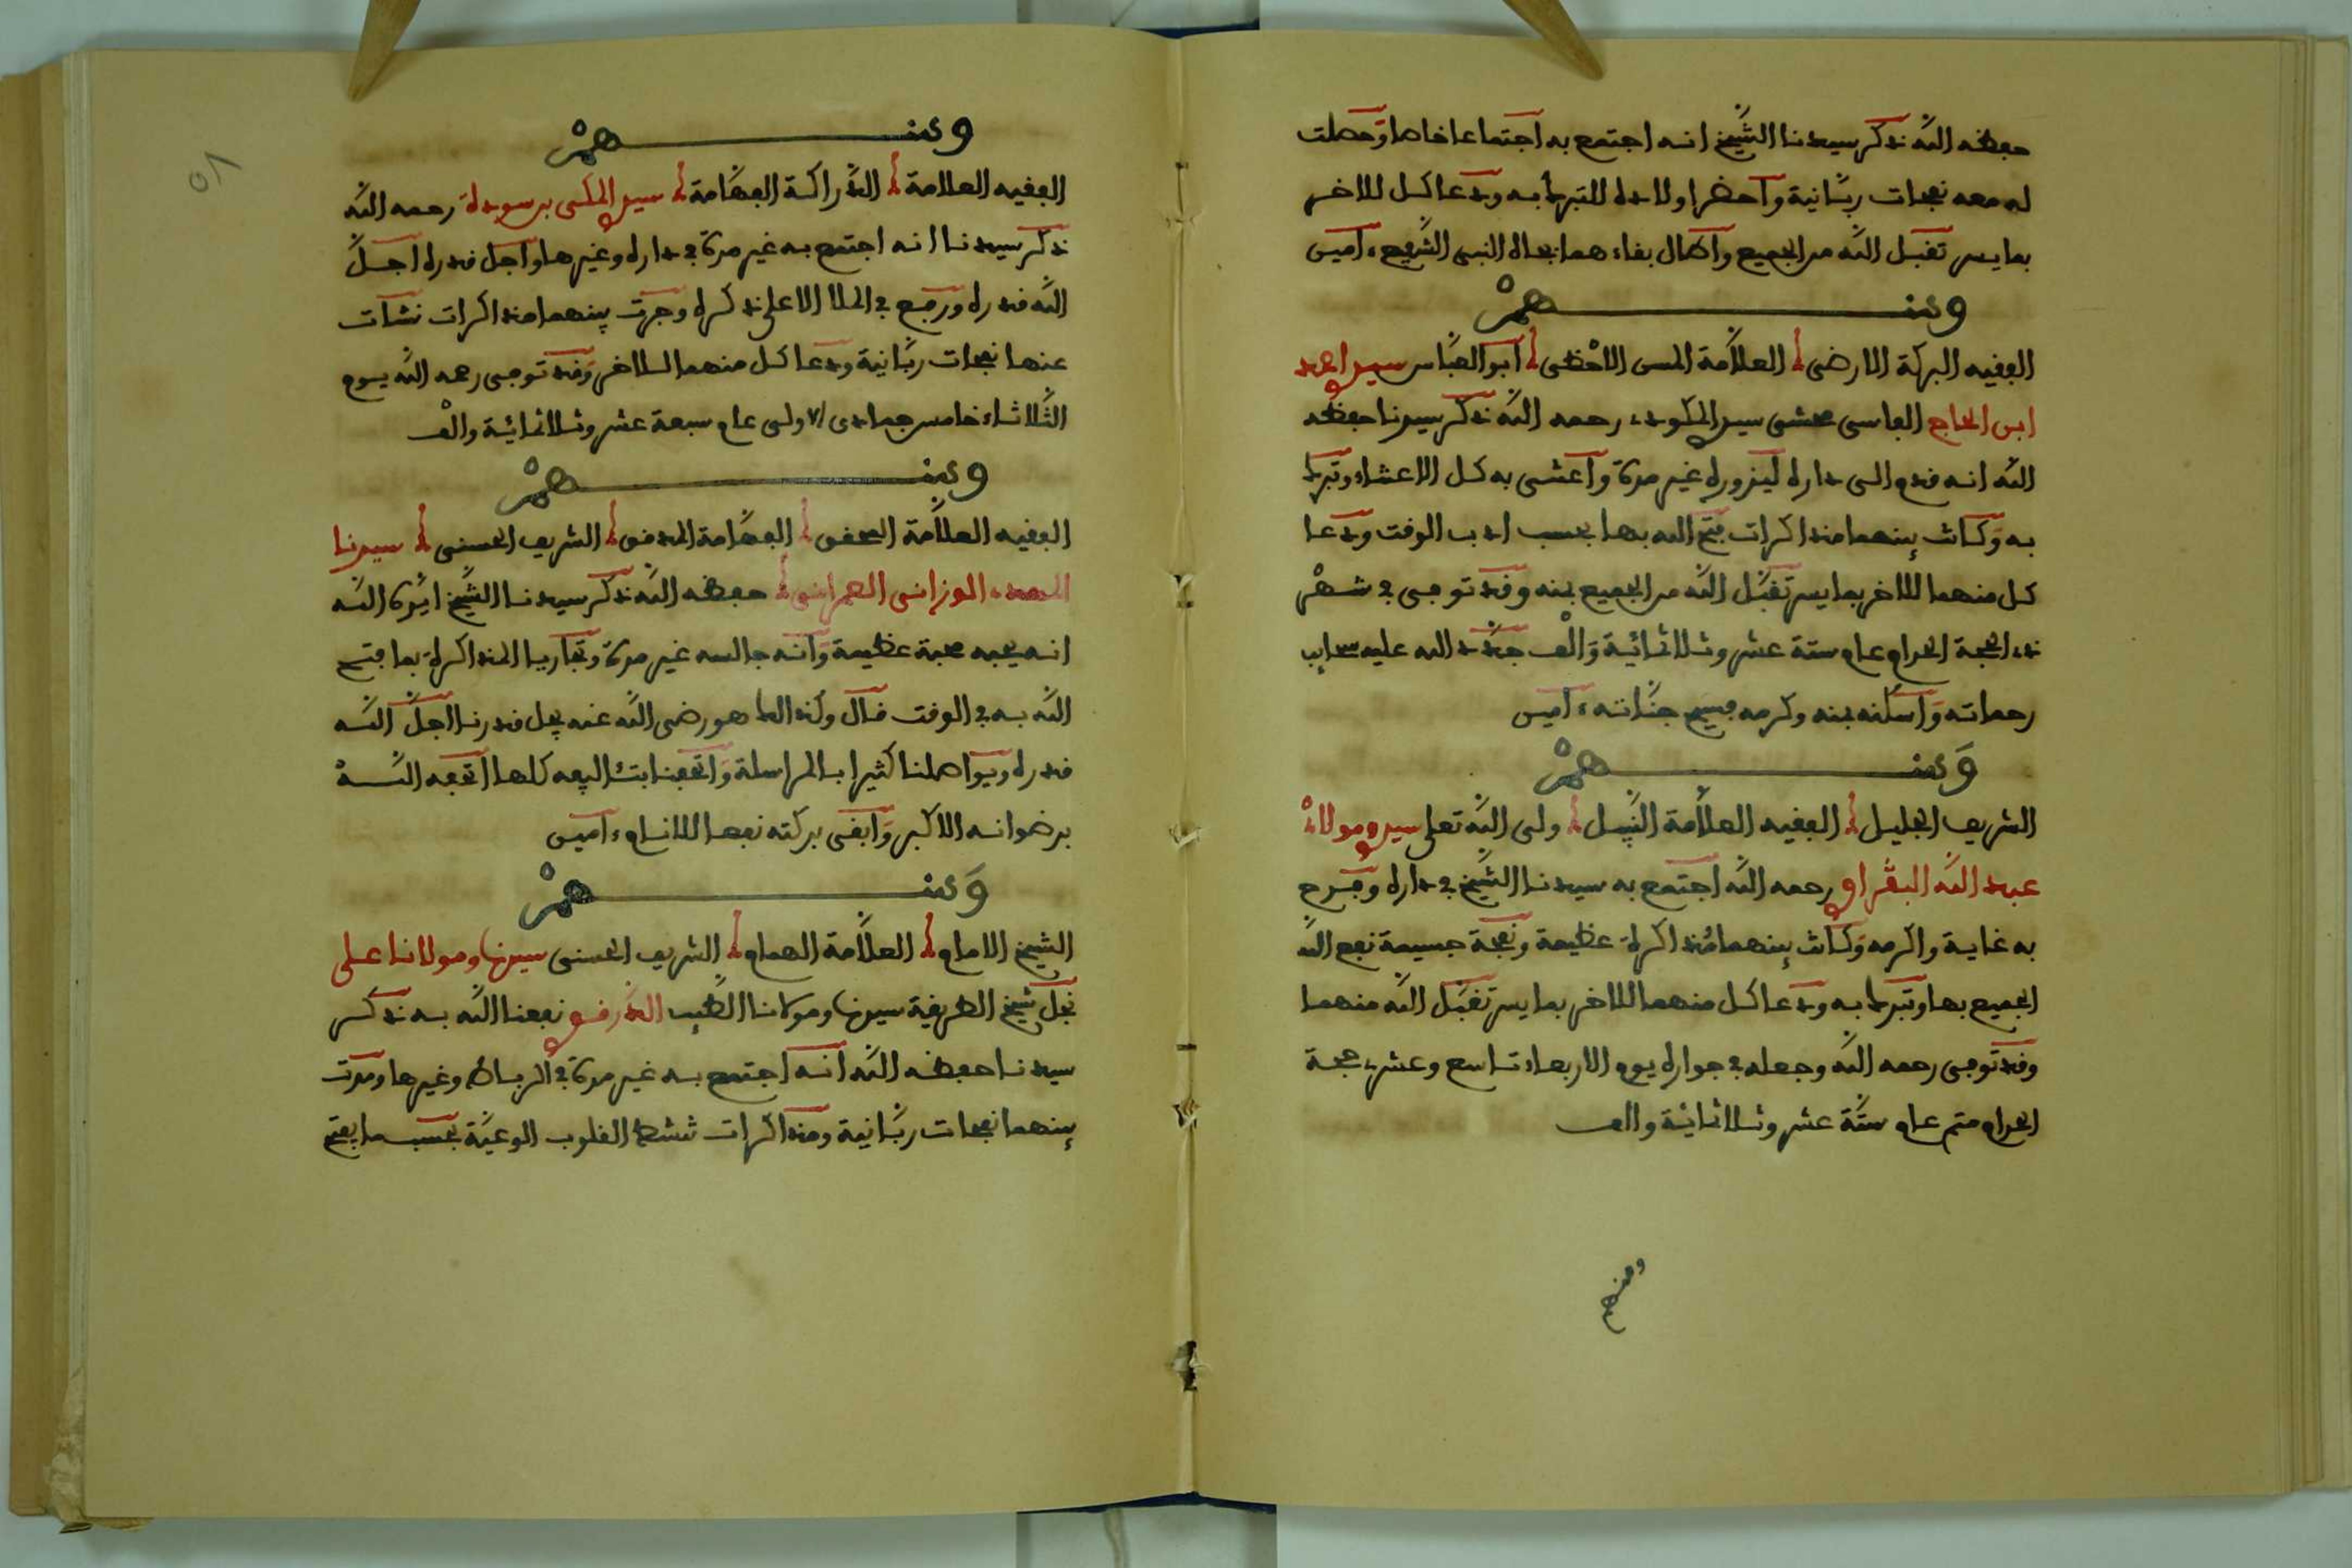 حفظه الله ذكر سيدنا الشيخ انه اجتمع به اجتماعا خاصا وحصلت
له معه نفحات ربانية وأحضر اولاده للتبرك به ودعا كل للاخر
بما يسر تقبل الله من الجميع وأطال بقاءهما بجاه النبي الشريع ءامين
ومنهم
الفقيه البركة الارضى العلامة المسن الاحظى أبو العباس سيدي احمد
ابن الحاج الفاسي محشي سيدي المكودي رحمه الله ذكر سيدنا حفظه
الله انه قدم الى داره ليزوره غير مرة واعتنى به كل الاعتناء وتبرك
به وكانت بينهما مذاكرات فتح الله بها بحسب ادب الوقت ودعا
كل منهما للاخر بما يسر تقبل الله من الجميع بمنه وقد توفي في شهر
ذي الحجة الحرام عام ستة عشر وثلاثمائية وألف جدد الله عليه سحايب
رحماته وأسكنه بمنه وكرمه فسيح جناته ءامين
ومنهم
الشريف الجليل الفقيه العلامة النبيل ولي الله تعلى سيدي ومولاي
عبد الله البدراوي رحمه الله اجتمع به سيدنا الشيخ في داره وفرح
به غاية واكرمه وكانت بينهما مذاكرة عظيمة ونفحة جسيمة نفع الله
الجميع بها وتبرك به ودعا كل منهما للاخر بما يسر تقبل الله منهما
وقد توفي رحمه الله وجعله في جواره يوم الاربعاء تاسع وعشري حجة
الحرام متم عام ستة عشر وثلاثمائية والف
ومنهم
٥٨
ومنهم
الفقيه العلامة الدراكة الفهامة سيدي المكي بن سودة رحمه الله
ذكر سيدنا انه اجتمع به غير مرة في داره وغيرها وأجل قدره اجل
الله قدره ورفع في الملا الاعلى ذكره وجرت بينهما مذاكرات نشات
عنها نفحات ربانية ودعا كل منهما للاخر وقد توفي رحمه الله يوم
الثلاثاء خامس جمادى الاولى عام سبعة عشر وثلاثمائية والف
ومنهم
الفقيه العلامة المحقق الفهامة المدقق الشريف الحسني سيدنا
المهدي الوزاني العمراني حفظه الله ذكر سيدنا الشيخ ايده الله
انه يحبه محبة عظيمة وأنه جالسه غير مرة وتجاريا المذاكرة بما فتح
الله به في الوقت قال وكذالك هو رضي الله عنه يجل قدرنا اجل الله
قدره ويواصلنا كثيرا بالمراسلة وأتحفنا بتئاليفه كلها اتحفه الله
برضوانه الاكبر وأبقى بركته نفعا للانام ءامين
ومنهم
الشيخ الامام العلامة الهمام الشريف الحسني سيدنا ومولانا علي
نجل شيخ الطريقة سيدنا ومولانا الطيب الدرقوي نفعنا الله به ذكر
سيدنا حفظه الله أنه اجتمع به غير مرة في الرباط وغيرها ومرت
بينهما نفحات ربانية ومذاكرات تنشط القلوب الوعية بحسب ما يفتح